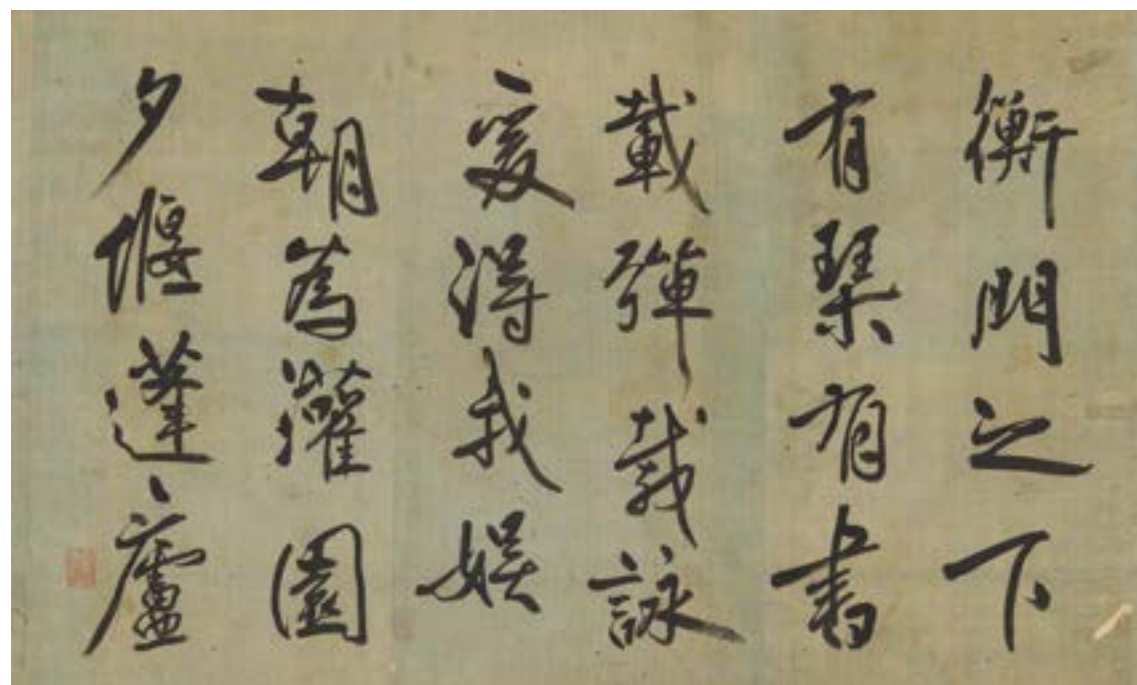 衡門之下
有琴有書
載彈載詠
爰得我娱
朝為灌園
夕偃蓬廬